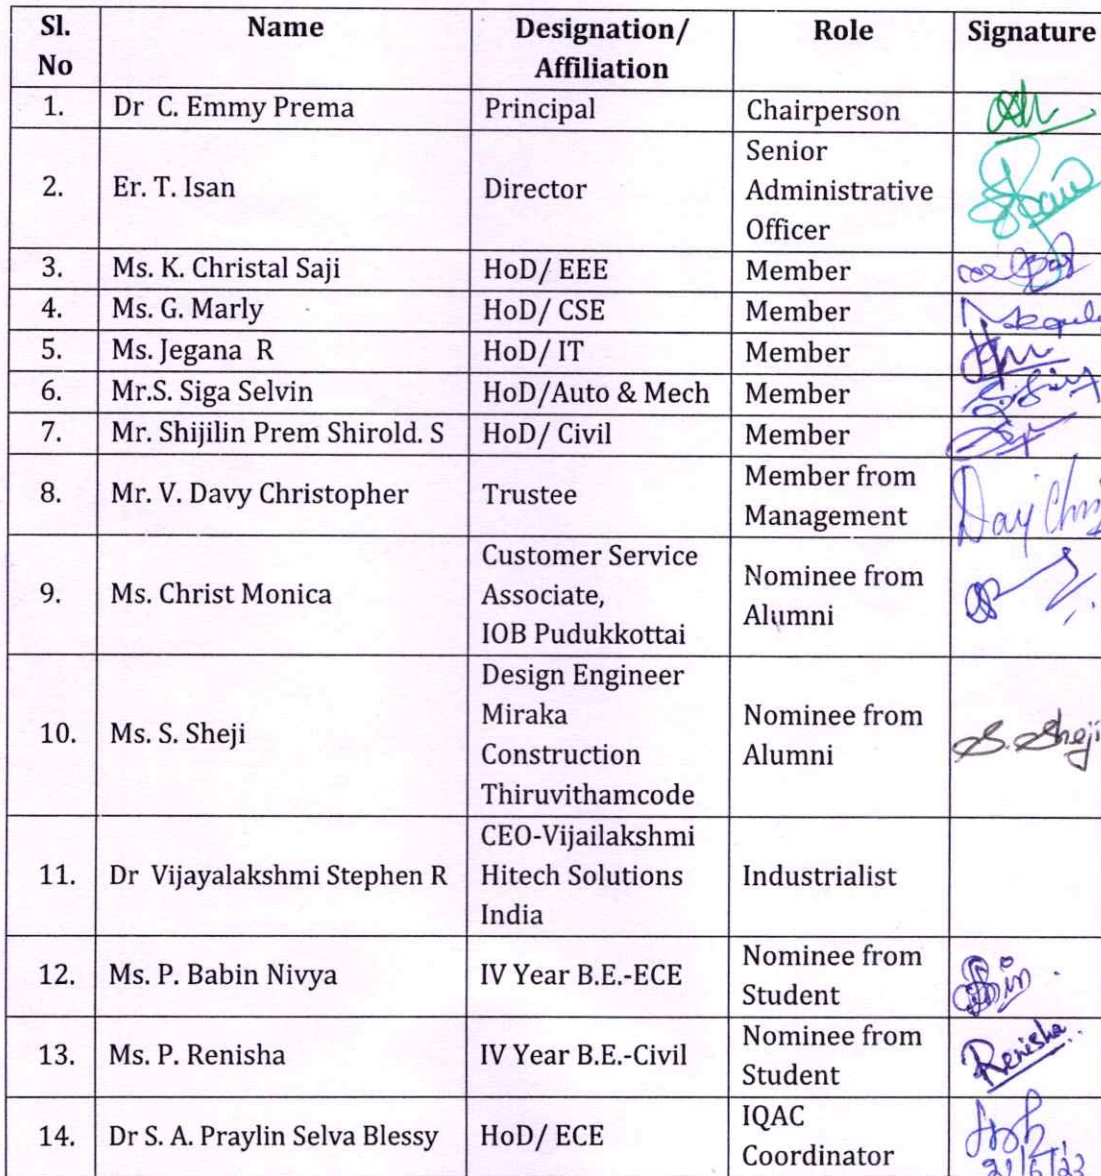 Sl. No Name Designation/ Affiliation Role Signature
1. Dr C. Emmy Prema Principal Chairperson
2. Er. T. Isan Director Senior Administrative Officer
3. Ms. K. Christal Saji HoD/ EEE Member
4. Ms. G. Marly HoD/ CSE Member
5. Ms. Jegana R HoD/ IT Member
6. Mr.S. Siga Selvin HoD/Auto & Mech Member
7. Mr. Shijilin Prem Shirold. S HoD/ Civil Member
8. Mr. V. Davy Christopher Trustee Member from Management
9. Ms. Christ Monica Customer Service Associate, IOB Pudukkottai Nominee from Alumni
10. Ms. S. Sheji Design Engineer Miraka Construction Thiruvithamcode Nominee from Alumni S. Sheji
11. Dr Vijayalakshmi Stephen R CEO-Vijailakshmi Hitech Solutions India Industrialist
12. Ms. P. Babin Nivya IV Year B.E.-ECE Nominee from Student
13. Ms. P. Renisha IV Year B.E.-Civil Nominee from Student Renisha
14. Dr S. A. Praylin Selva Blessy HoD/ ECE IQAC Coordinator